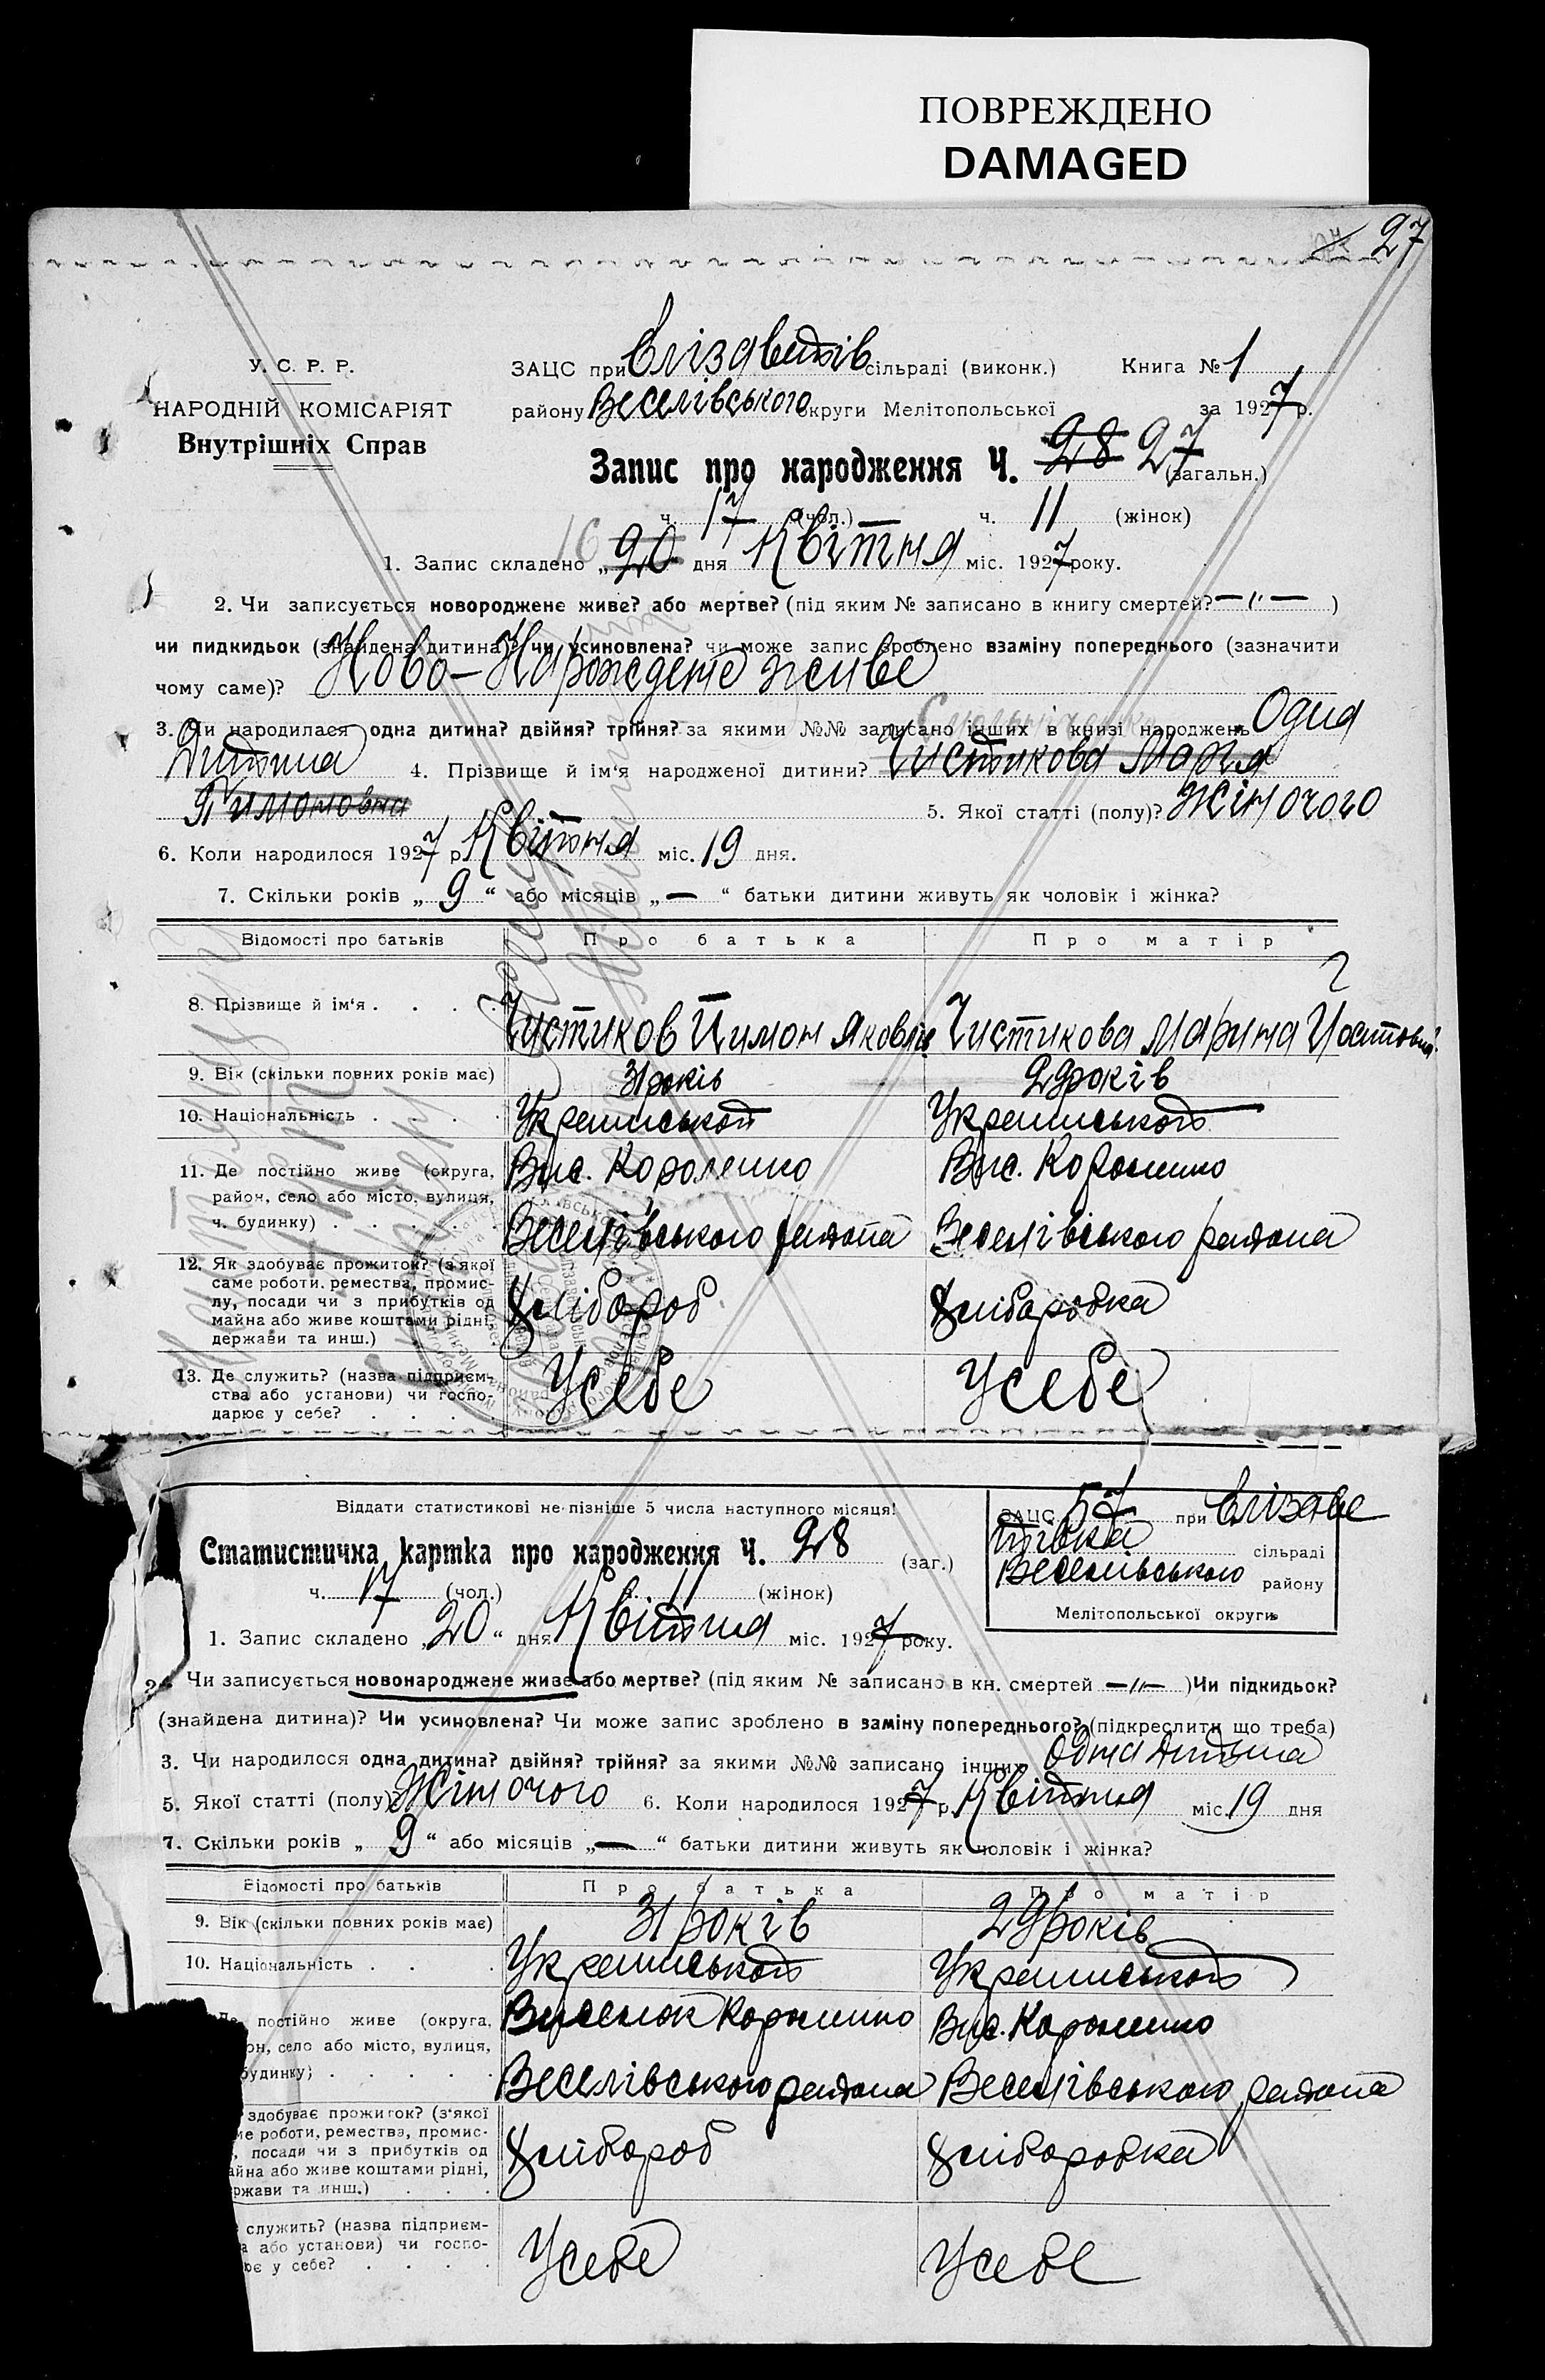 ПОВРЕЖДЕНО
DAMAGED
27
У. С. Р. Р.
НАРОДНІЙ КОМІСАРІЯТ
Внутрішніх Справ
ЗАЦС при Єлізаветів сільраді (виконк.) Книга № 1
району Веселівського округи Мелітопольської за 1927 р.
Запис про народження Ч. 28 27 (загальн.)
ч. 17 (чол.) ч. 11 (жінок)
1. Запис складено „20“ дня Квітня міс. 1927 року.
2. Чи записується новороджене живе? або мертве? (під яким № записано в книгу смертей? —"— )
чи пидкидьок (знайдена дитина)? чи усиновлена? чи може запис зроблено взаміну попереднього (зазначити
чому саме)? Ново-Нарождене живе
3. Чи народилася одна дитина? двійня? трійня? за якими №№ записано інших в книзі народжень Одна
Дитина 4. Прізвище й ім'я народженої дитини? Чистикова Марія
5. Якої статті (полу)? Жіночого
6. Коли народилося 1927 р. Квітня міс. 19 дня.
7. Скільки років „9“ або місяців „—“ батьки дитини живуть як чоловік і жінка?
Відомості про батьків Про батька Про матір
8. Прізвище й ім'я . . . . Чистиков Тимон Яковлів Чистикова Марина
9. Вік (скільки повних років має) 31 років 29 років
10. Національність . . . . Українськой Українськой
11. Де постійно живе (округа, Вис. Короленко Вис. Короленко
район, село або місто, вулиця,
ч. будинку) . . . . . Веселівського района Веселівського района
12. Як здобуває прожиток? (з якої
саме роботи, ремества, промис-
лу, посади чи з прибутків од Хлібороб Хлібаробка
майна або живе коштами рідні,
держави та инш.)
13. Де служить? (назва підприєм- Усебе Усебе
ства або установи) чи госпо-
дарює у себе? . . . .
Віддати статистикові не пізніше 5 числа наступного місяця!
ЗАЦС 57 при Єлізаве
тівка сільраді
Веселівського району
Мелітопольської округи
Статистична картка про народження Ч. 28 (заг.)
ч. 17 (чол.) ч. 11 (жінок)
1. Запис складено „20“ дня Квітня міс. 1927 року.
2. Чи записується новонароджене живе або мертве? (під яким № записано в кн. смертей —"— ) Чи підкидьок?
(знайдена дитина)? Чи усиновлена? Чи може запис зроблено в заміну попереднього? (підкреслити що треба)
3. Чи народилося одна дитина? двійня? трійня? за якими №№ записано інших Одна дитина
5. Якої статті (полу)? Жіночого 6. Коли народилося 1927 р. Квітня міс. 19 дня
7. Скільки років „9“ або місяців „—“ батьки дитини живуть як чоловік і жінка?
Відомості про батьків Про батька Про матір
9. Вік (скільки повних років має) 31 років 29 років
10. Національність . . . Українськой Українськой
Де постійно живе (округа, Виселок Короленко Вис. Короленко
он, село або місто, вулиця,
будинку) . . . . . Веселівського района Веселівського района
здобуває прожиток? (з'якої
ме роботи, ремества, промис-
, посади чи з прибутків од Хлібороб Хлібаробка
айна або живе коштами рідні,
ржави та инш.) . . .
служить? (назва підприєм-
а або установи) чи госпо- Усебе Усебе
ює у себе? . . . .